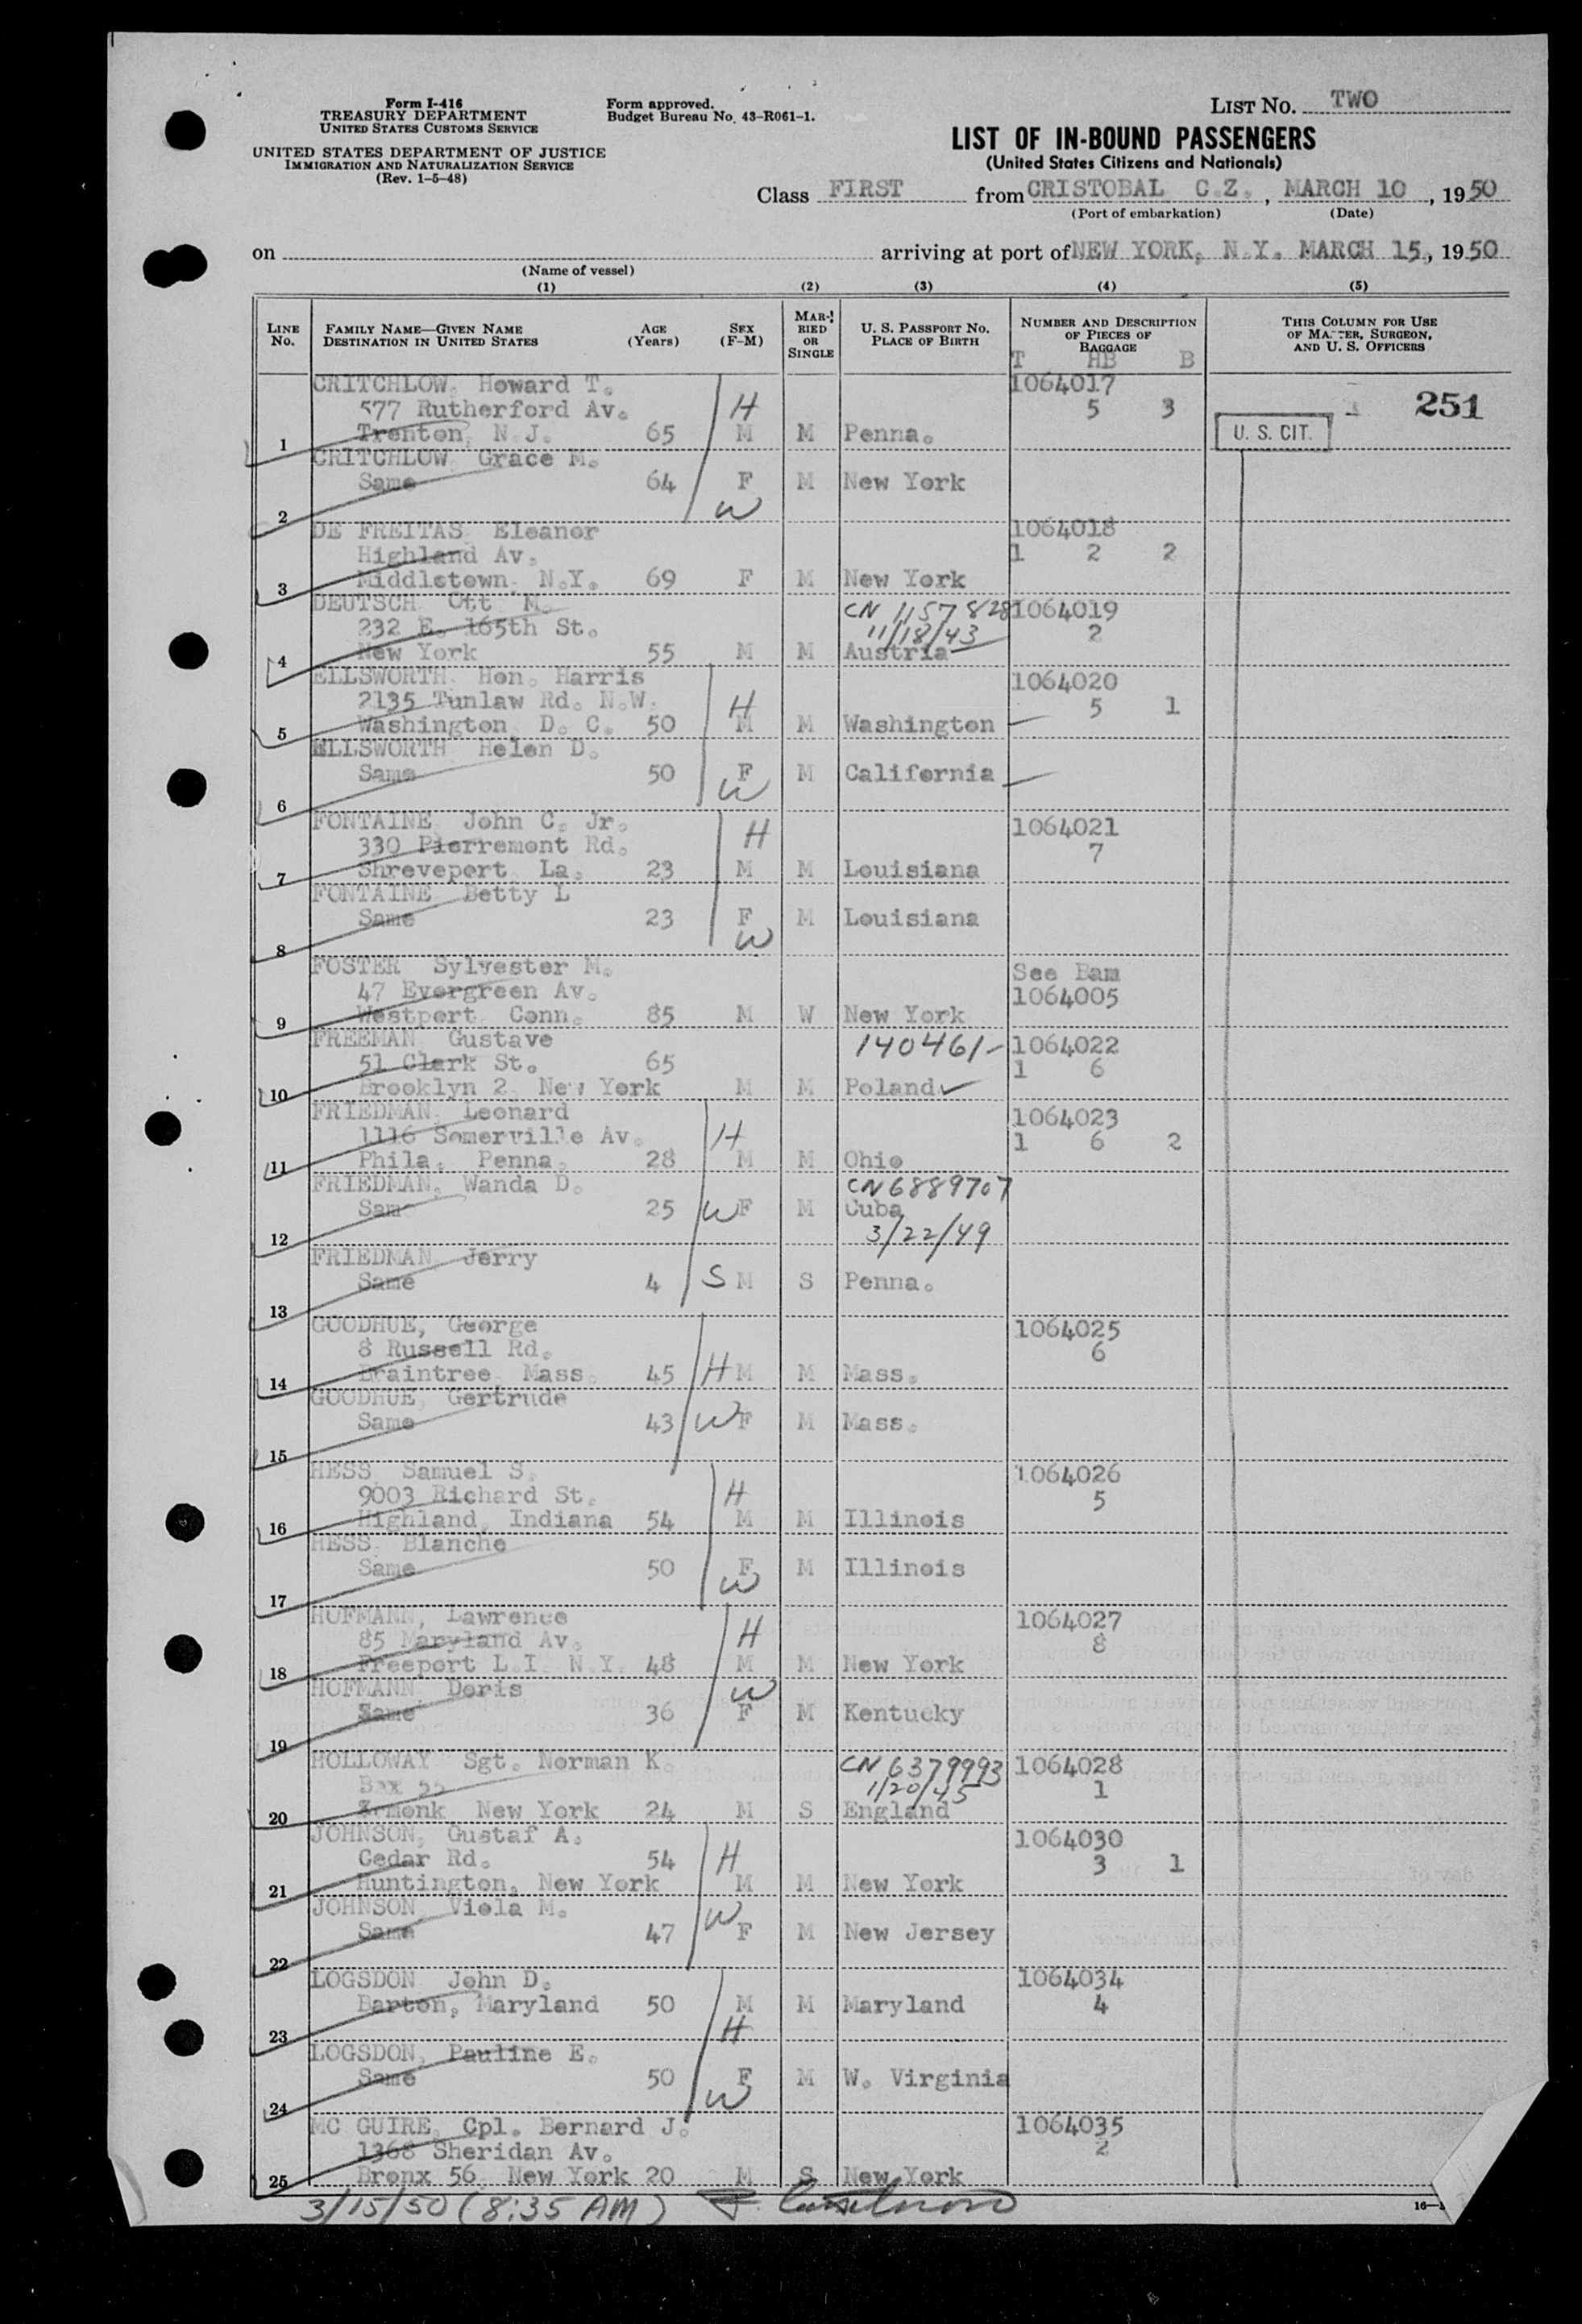 Form I-416
TREASURY DEPARTMENT
UNITED STATES CUSTOMS SERVICE
UNITED STATES DEPARTMENT OF JUSTICE
IMMIGRATION AND NATURALIZATION SERVICE
(Rev. 1-5-48)
Form approved.
Budget Bureau No. 43-R061-1.
LIST NO. TWO
LIST OF IN-BOUND PASSENGERS
(United States Citizens and Nationals)
Class FIRST from CRISTOBAL C.Z., MARCH 10, 1950
(Port of embarkation) (Date)
on arriving at port of NEW YORK, N.Y. MARCH 15, 1950
(Name of vessel)
(1) (2) (3) (4) (5)
LINE NO. FAMILY NAME—GIVEN NAME DESTINATION IN UNITED STATES AGE (Years) SEX (F-M) MARRIED OR SINGLE U. S. PASSPORT NO. PLACE OF BIRTH NUMBER AND DESCRIPTION OF PIECES OF BAGGAGE THIS COLUMN FOR USE OF MASTER, SURGEON, AND U. S. OFFICERS
T HB B
CRITCHLOW, Howard T. 1064017
577 Rutherford Av. H 5 3 251
1 Trenton, N.J. 65 M M Penna. U. S. CIT.
CRITCHLOW, Grace M.
Same 64 F M New York
2 W
DE FREITAS Eleanor 1064018
Highland Av. 1 2 2
3 Middletown, N.Y. 69 F M New York
DEUTSCH Ott M. CN 1157828 1064019
232 E. 165th St. 11/18/43 2
4 New York 55 M M Austria
ELLSWORTH Hon. Harris 1064020
2135 Tunlaw Rd. N.W. H 5 1
5 Washington, D. C. 50 M M Washington
ELLSWORTH Helen D.
Same 50 F M California
6 W
FONTAINE John C. Jr. H 1064021
330 Pierremont Rd. 7
7 Shreveport La. 23 M M Louisiana
FONTAINE Betty L
Same 23 F M Louisiana
8 W
FOSTER Sylvester M. See Bam
47 Evergreen Av. 1064005
9 Westport Conn. 85 M W New York
FREEMAN Gustave 140461 1064022
51 Clark St. 65 1 6
10 Brooklyn 2, New York M M Poland
FRIEDMAN, Leonard 1064023
1116 Somerville Av. H 1 6 2
11 Phila. Penna. 28 M M Ohio
FRIEDMAN, Wanda D. CN 6889707
Sam 25 W F M Cuba
12 3/22/49
FRIEDMAN Jerry
Same 4 S M S Penna.
13
GOODHUE, George 1064025
8 Russell Rd. 6
14 Braintree Mass. 45 H M M Mass.
GOODHUE, Gertrude
Same 43 W F M Mass.
15
HESS Samuel S. 1064026
9003 Richard St. H 5
16 Highland, Indiana 54 M M Illinois
HESS, Blanche
Same 50 F M Illinois
17 W
HOFMANN, Lawrence 1064027
85 Maryland Av. H 8
18 Freeport L.I. N.Y. 48 M M New York
HOFMANN Doris W
Same 36 F M Kentucky
19
HOLLOWAY Sgt. Norman K. CN 6379993 1064028
Box 55 1/20/45 1
20 Armonk New York 24 M S England
JOHNSON, Gustaf A. 1064030
Cedar Rd. 54 H 3 1
21 Huntington, New York M M New York
JOHNSON Viola M. W
Same 47 F M New Jersey
22
LOGSDON John D. 1064034
Barton, Maryland 50 M M Maryland 4
23 H
LOGSDON, Pauline E.
Same 50 F M W. Virginia
24 W
MC GUIRE, Cpl. Bernard J. 1064035
1368 Sheridan Av. 2
25 Bronx 56 New York 20 M S New York
3/15/50 (8:35 AM)
16—